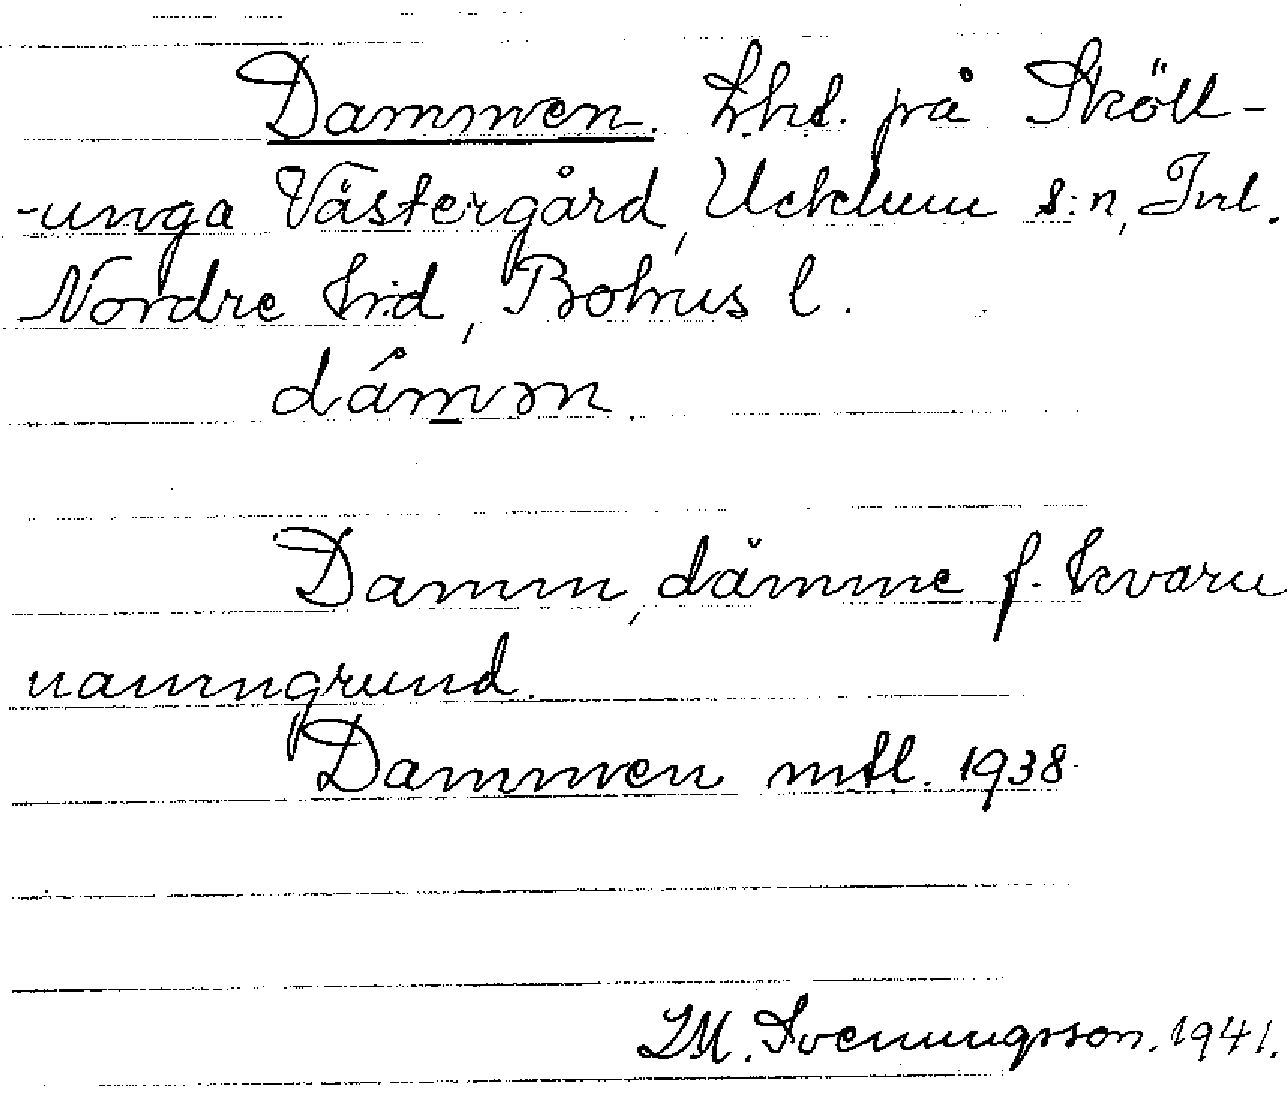 Dammen. Lht. på Sköll-
-unga Västergård, Ucklum s:n, Inl.
Nordre hrd, Bohus l.
Damm, dämme f. kvarn
namngrund.
Dammen mtl. 1938.
LM. Svenungsson. 1941.